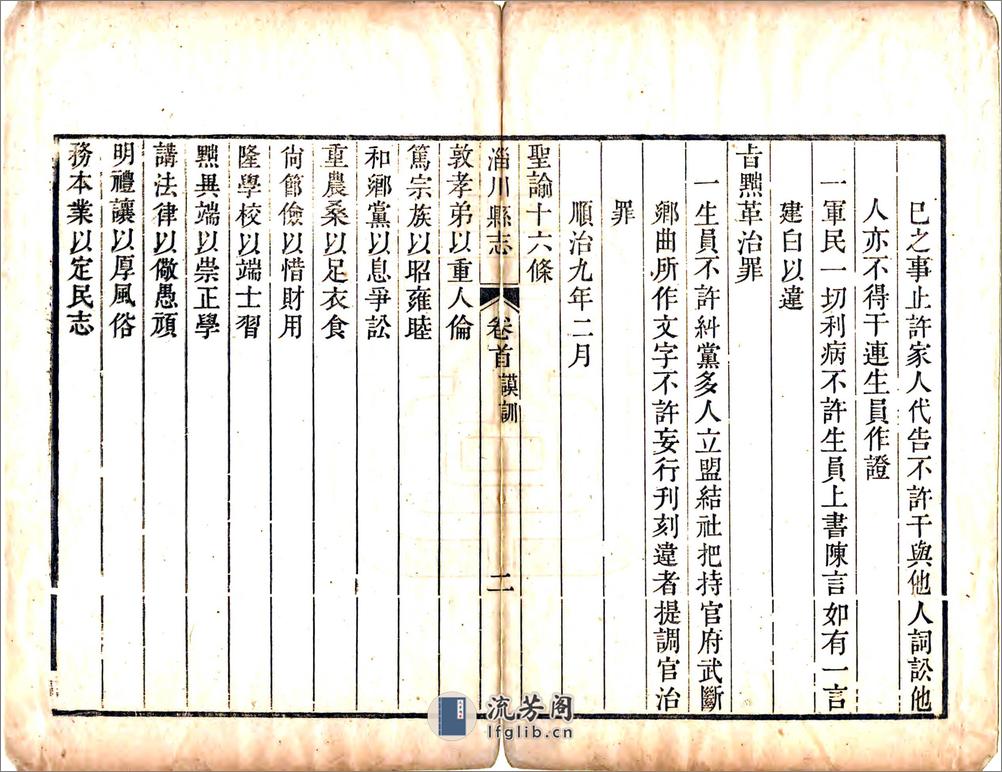 巳之事止許家人代告不許干與他人詞訟他
人亦不得干連生員作證
一軍民一切利病不許生員上書陳言如有一言
建白以違
旨黜革治罪
一生員不許糾黨多人立盟結社把持官府武斷
鄉曲所作文字不許妄行刊刻違者提調官治
罪
順治九年二月
聖諭十六條
淄川縣志 卷首 謨訓 二
敦孝弟以重人倫
篤宗族以昭雍睦
和鄉黨以息爭訟
重農桑以足衣食
尙節儉以惜財用
隆學校以端士習
黜異端以崇正學
講法律以儆愚頑
明禮讓以厚風俗
務本業以定民志
流芳阁
lfglib.cn